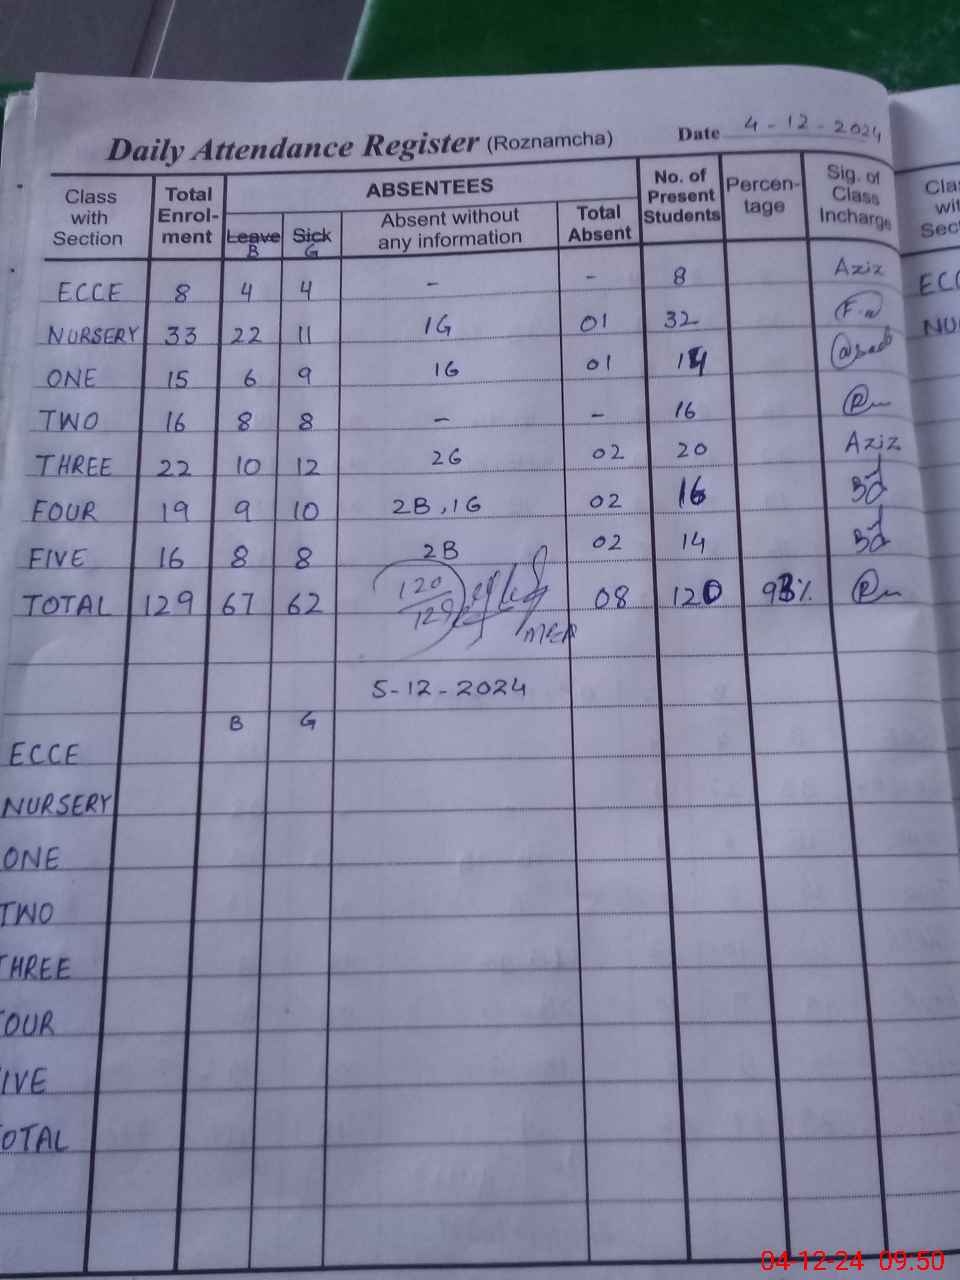 Daily Attendance Register (Roznamcha) Date 4-12-2024
Class with Section Total Enrol-ment ABSENTEES No. of Present Students Percen-tage Sig. of Class Incharge
Leave Sick Absent without any information Total Absent
B G
ECCE 8 4 4 - - 8 Aziz
NURSERY 33 22 11 1G 01 32
ONE 15 6 9 1G 01 14
TWO 16 8 8 - - 16
THREE 22 10 12 2G 02 20 Aziz
FOUR 19 9 10 2B, 1G 02 16
FIVE 16 8 8 2B 02 14
TOTAL 129 67 62 120/129 08 120 93%
MEA
5-12-2024
B G
ECCE
NURSERY
ONE
TWO
THREE
OUR
IVE
OTAL
Cla
wit
Sec
ECC
NU
04-12-24 09:50